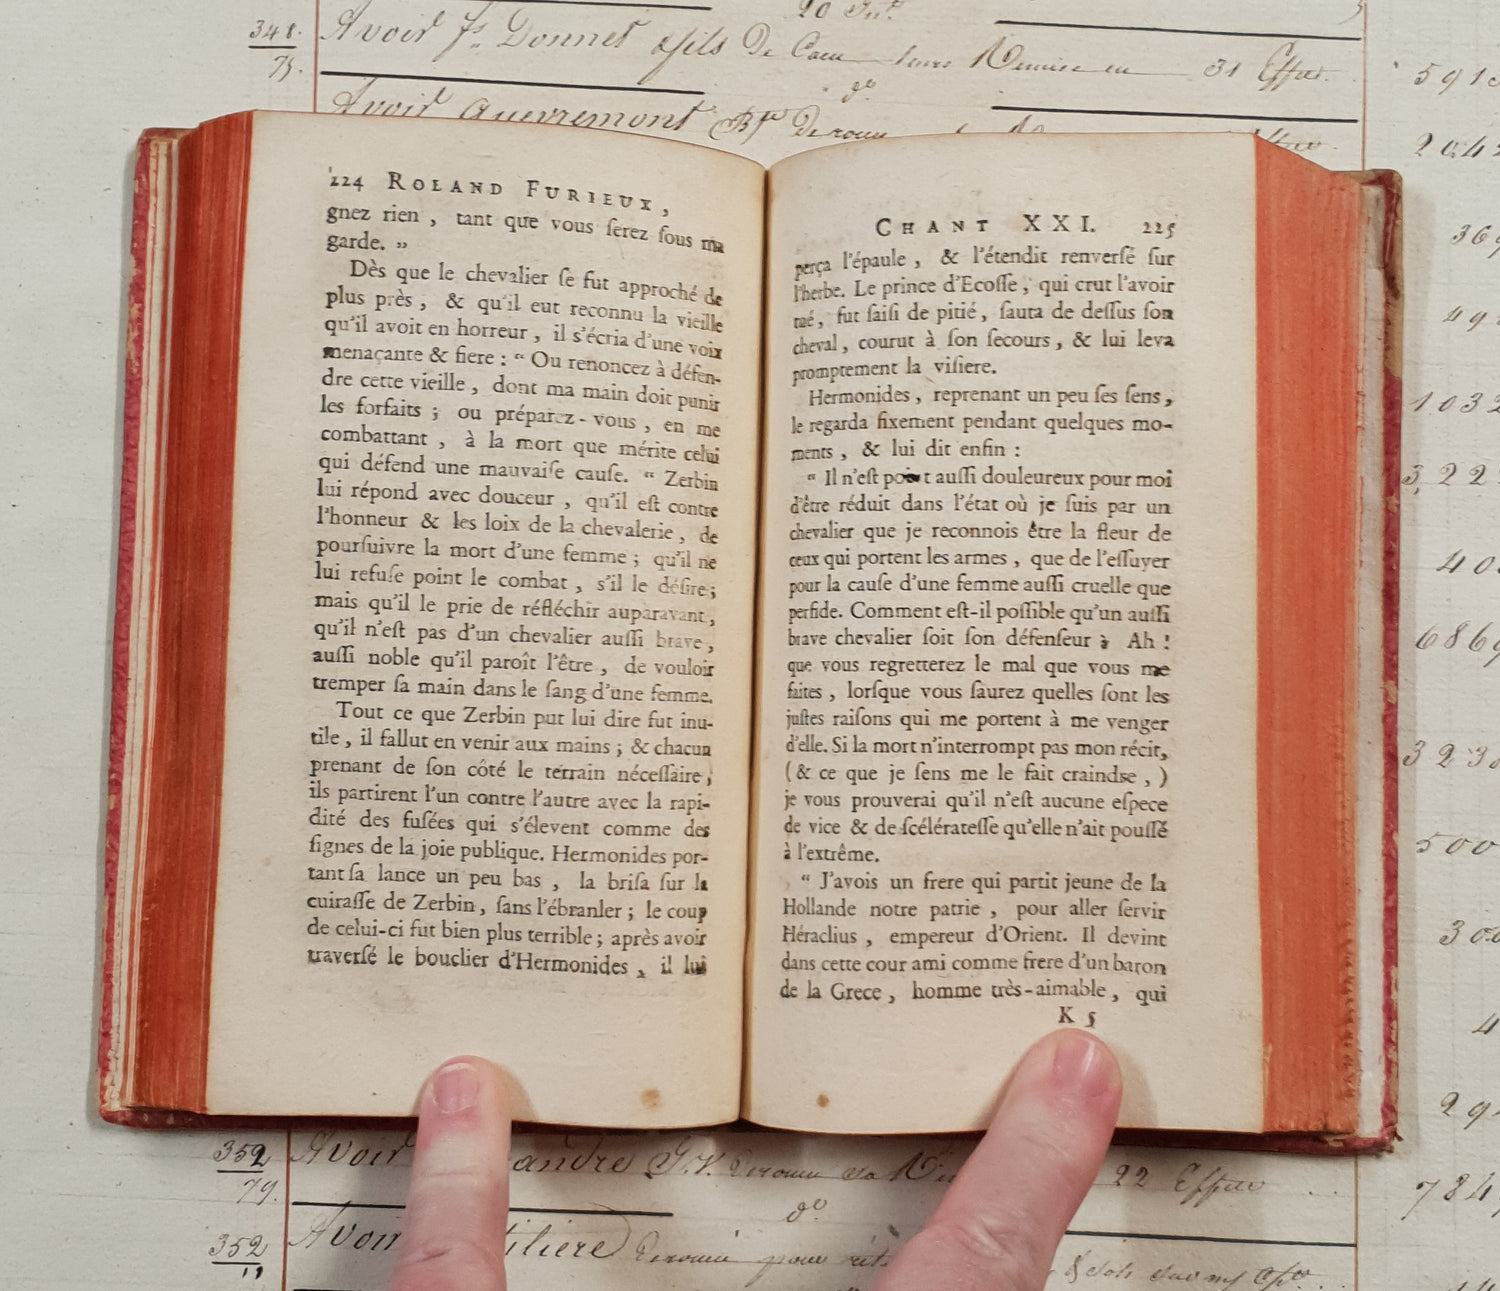 348.
Avoir fs Donnet & fils De Caen
31
75.
591
Avoir
204
224 ROLAND FURIEUX,
gnez rien , tant que vous ſerez ſous ma
garde. „
Dès que le chevalier ſe fut approché de
plus près , & qu'il eut reconnu la vieille
qu'il avoit en horreur , il s'écria d'une voix
menaçante & fiere : “ Ou renoncez à défen-
dre cette vieille , dont ma main doit punir
les forfaits ; ou préparez-vous , en me
combattant , à la mort que mérite celui
qui défend une mauvaiſe cauſe. “ Zerbin
lui répond avec douceur , qu'il eſt contre
l'honneur & les loix de la chevalerie , de
pourſuivre la mort d'une femme ; qu'il ne
lui refuſe point le combat , s'il le déſire ;
mais qu'il le prie de réfléchir auparavant ,
qu'il n'eſt pas d'un chevalier auſſi brave ,
auſſi noble qu'il paroît l'être , de vouloir
tremper ſa main dans le ſang d'une femme.
Tout ce que Zerbin put lui dire fut inu-
tile , il fallut en venir aux mains ; & chacun
prenant de ſon côté le terrain néceſſaire ,
ils partirent l'un contre l'autre avec la rapi-
dité des fuſées qui s'élevent comme des
ſignes de la joie publique. Hermonides por-
tant ſa lance un peu bas , la briſa ſur la
cuiraſſe de Zerbin , ſans l'ébranler ; le coup
de celui-ci fut bien plus terrible ; après avoir
traverſé le bouclier d'Hermonides , il lui
CHANT XXI. 225
perça l'épaule , & l'étendit renverſé ſur
l'herbe. Le prince d'Ecoſſe , qui crut l'avoir
tué , fut ſaiſi de pitié , ſauta de deſſus ſon
cheval , courut à ſon ſecours , & lui leva
promptement la viſiere.
Hermonides , reprenant un peu ſes ſens ,
le regarda fixement pendant quelques mo-
ments , & lui dit enfin :
“ Il n'eſt point auſſi douloureux pour moi
d'être réduit dans l'état où je ſuis par un
chevalier que je reconnois être la fleur de
ceux qui portent les armes , que de l'eſſuyer
pour la cauſe d'une femme auſſi cruelle que
perfide. Comment eſt-il poſſible qu'un auſſi
brave chevalier ſoit ſon défenſeur ? Ah !
que vous regretterez le mal que vous me
faites , lorſque vous ſaurez quelles ſont les
juſtes raiſons qui me portent à me venger
d'elle. Si la mort n'interrompt pas mon récit,
( & ce que je ſens me le fait craindre , )
je vous prouverai qu'il n'eſt aucune eſpece
de vice & de ſcélérateſſe qu'elle n'ait pouſſé
à l'extrême.
“ J'avois un frere qui partit jeune de la
Hollande notre patrie , pour aller ſervir
Héraclius , empereur d'Orient. Il devint
dans cette cour ami comme frere d'un baron
de la Grece , homme très-aimable , qui
K 5
369
49
1032
322
40
686
323
500
300
4
29
352
Avoir
22
79.
784
352
Avoir
11